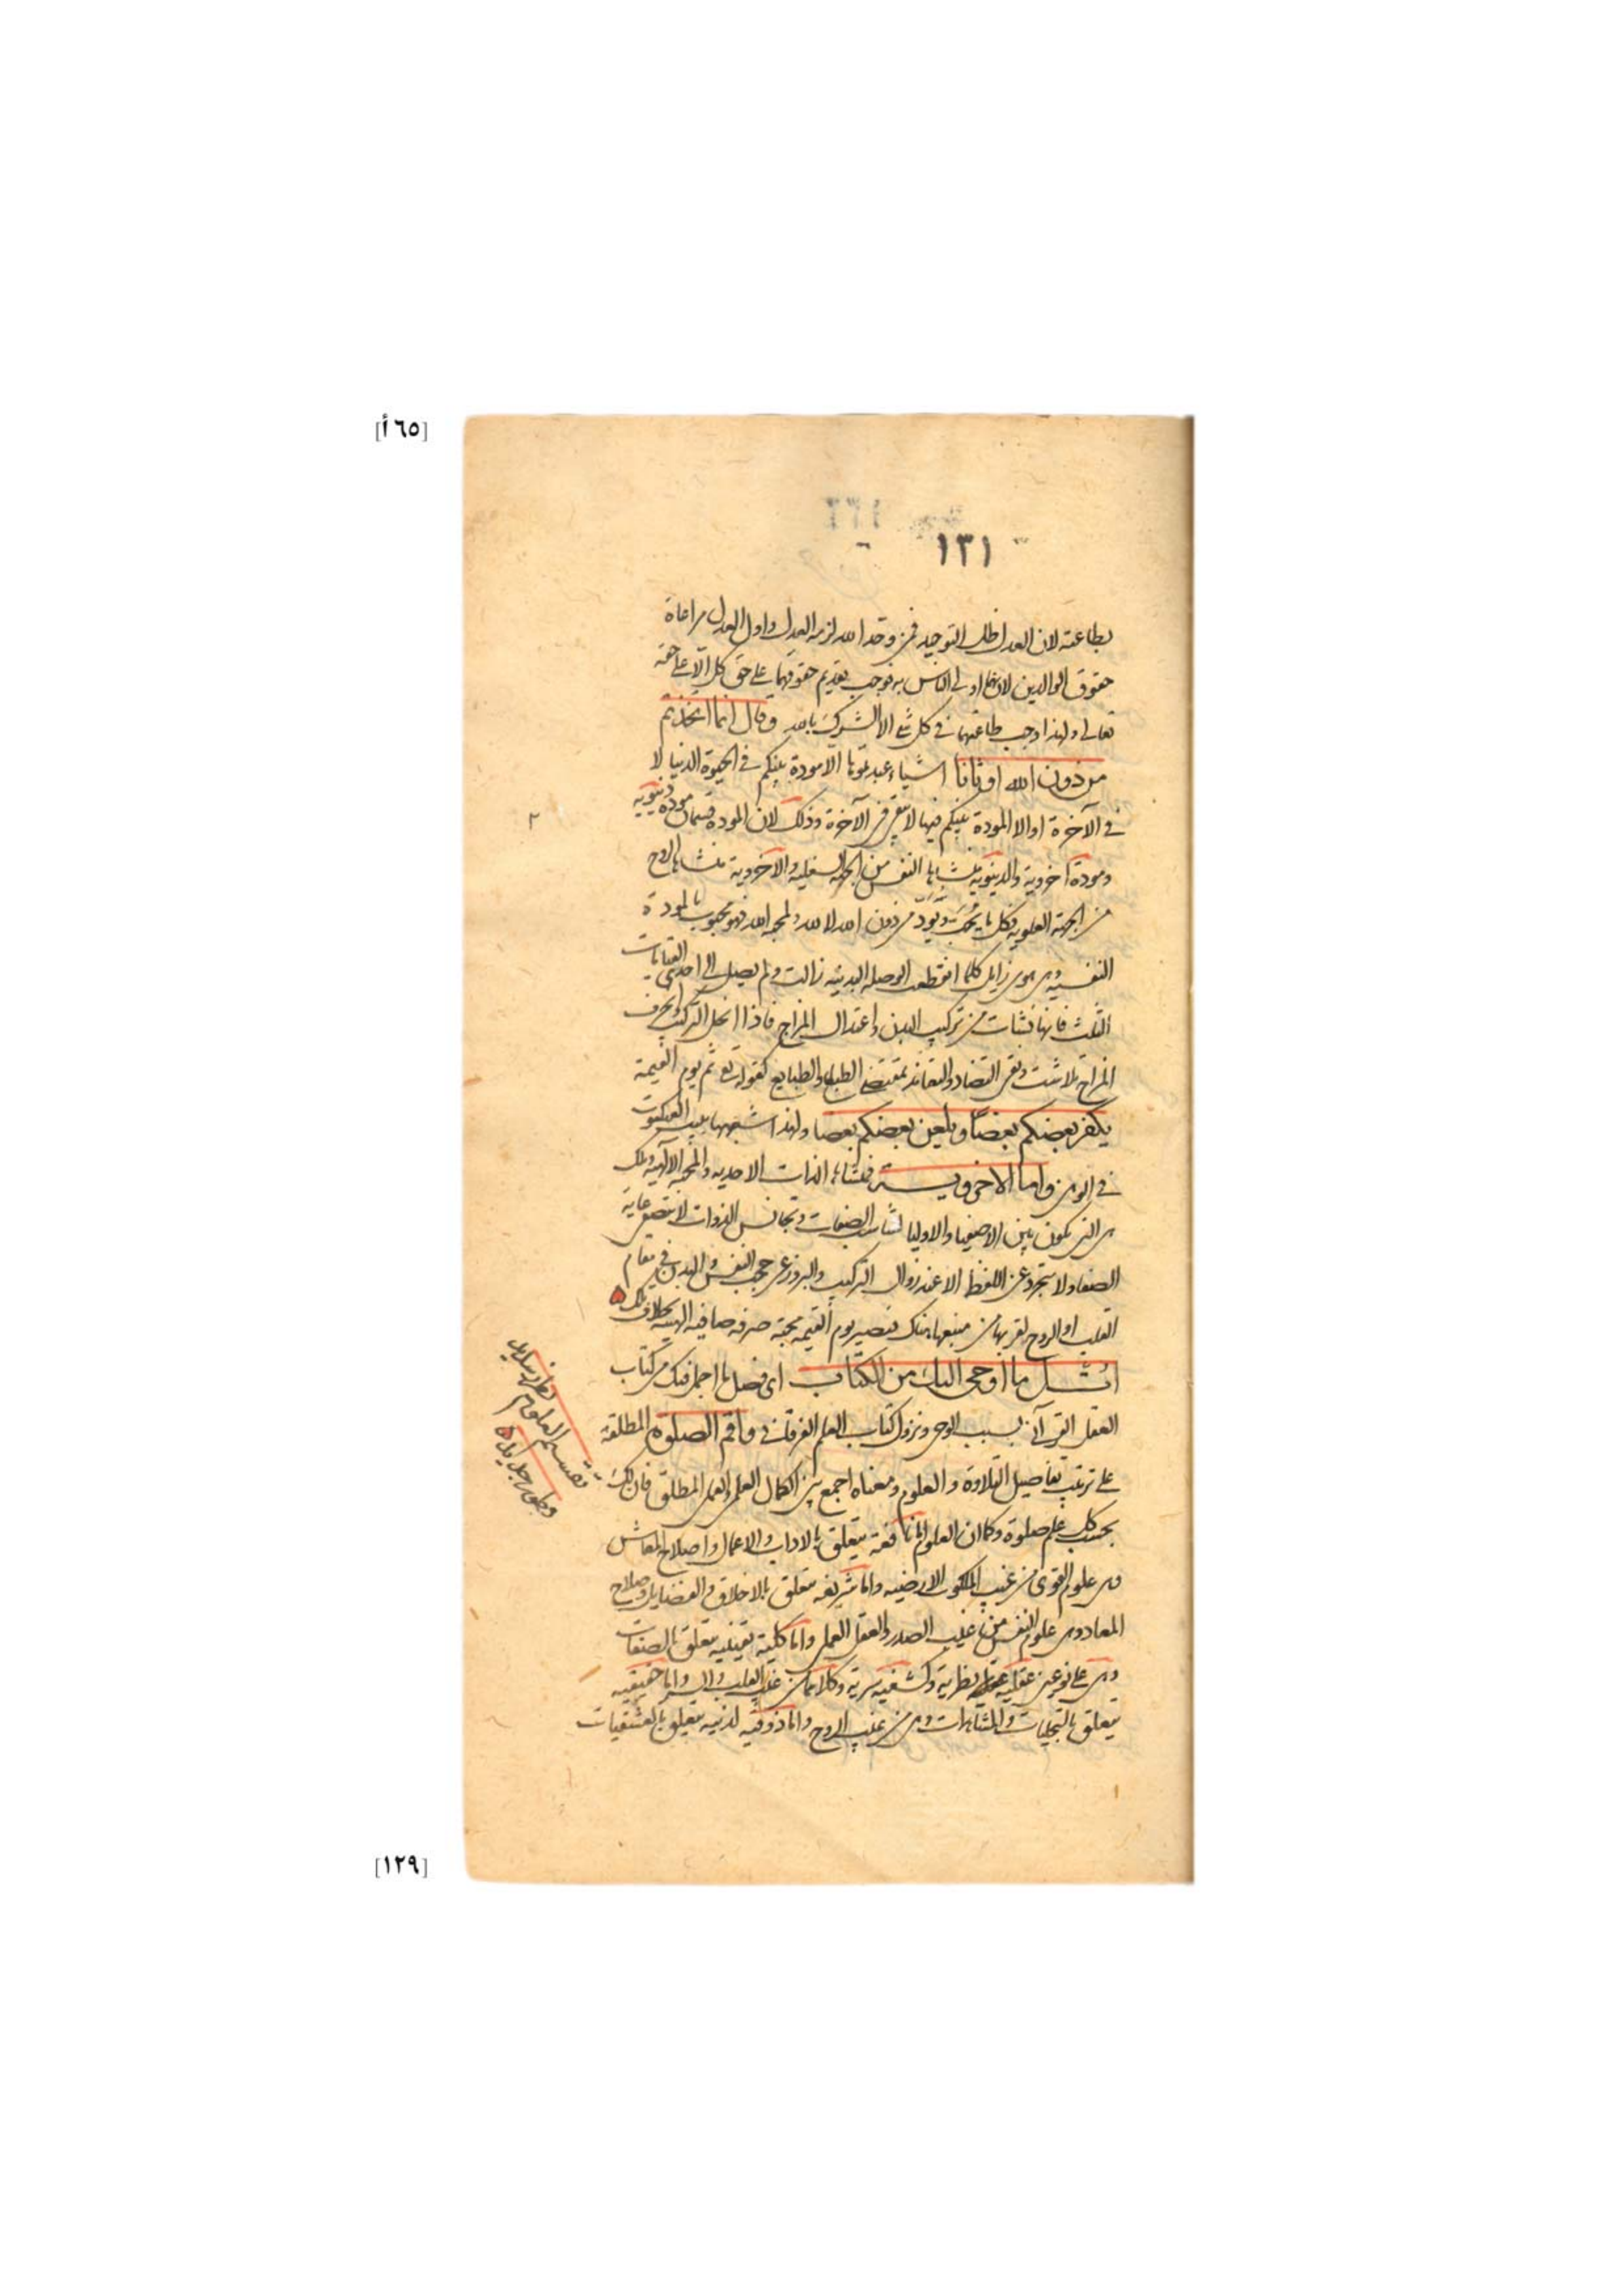 [٦٥أ]
١٣١
بطاعته لان العدل ظل التوحيد فمن وحد الله لزمه العدل واول العدل مراعاة
حقوق الوالدين لانهما اولى الناس به فوجب تقديم حقوقهما على حق كل الا على حقه
تعالى ولهذا اوجب طاعتهما في كل شئ الا الشرك بالله وقال انما اتخذتم
من دون الله اوثانا اشياء عبدتموها الا مودة بينكم في الحيوة الدنيا لا
في الآخرة اوالا المودة بينكم فيها لا تبقى فى الآخرة وذلك لان المودة قسمان مودة دنيوية
ومودة اخروية والدنيوية منشاها النفس من الجهة السفلية والآخروية منشاها الروح
من الجهة العلوية فكل ما يحب ويود من دون الله لا لله ولمحبة الله فهو محبوب بالمودة
النفسية وهى هوى زايل كلما انقطعت الوصلة البدنية زالت ولم يصل الى احدى القيامات
الثلث فانها نشات من تركيب البدن واعتدال المزاج فاذا انحل التركيب وانحرف
المزاج تلاشت وبقى التضاد والتعاند بمقتضى الطبايع كقوله تع ثم يوم القيمة
يكفر بعضكم بعضا ويلعن بعضكم بعضا ولهذا شبهها ببيت العنكبوت
في الوهن واما الاخروية فمنشاها الذات الاحدية والمحبة الالهية وتلك
هى التى تكون بين الاصفيا والاوليا لتناسب الصفات وتجانس الذوات لا تتصفى غاية
الصفا ولا تتجرد عن الا عند زوال التركيب والبروز عن حجب النفس والبدن في مقام
القلب والروح لقربها من منبعها هناك فتصير يوم القيمة محبة صرفة صافية الهية بخلاف تلك
اتل ما اوحى اليك من الكتاب اى فصل ما اجمل فيك من كتاب
العقل القرآني بسبب الوحى ونزول كتاب العلم الفرقاني واقم الصلوة المطلقة
على ترتيب تفاصيل التلاوة والعلوم ومعناه اجمع بين الكمال العلمى والعملى المطلق فان لك
بحسب كل علم صلوة وكما ان العلوم اما نافعة يتعلق بالاداب والاعمال واصلاح المعاش
وهى علوم القوى من غيب الملكوت الارضية واما شريفة متعلق بالاخلاق والفضايل واصلاح
المعاد وهى علوم النفس من غيب الصدر والعقل العملى واما كلية يقينية يتعلق بالصفات
وهى على نوعين عقلية نظرية وكشفية سرية وكلاهما من غيب القلب والسر واما حقيقية
يتعلق بالتجليات والمشاهدات وهى من غيب الروح واما ذوقية لدنية يتعلق بالعشقيات
تقسيم العلوم
[١٢٩]